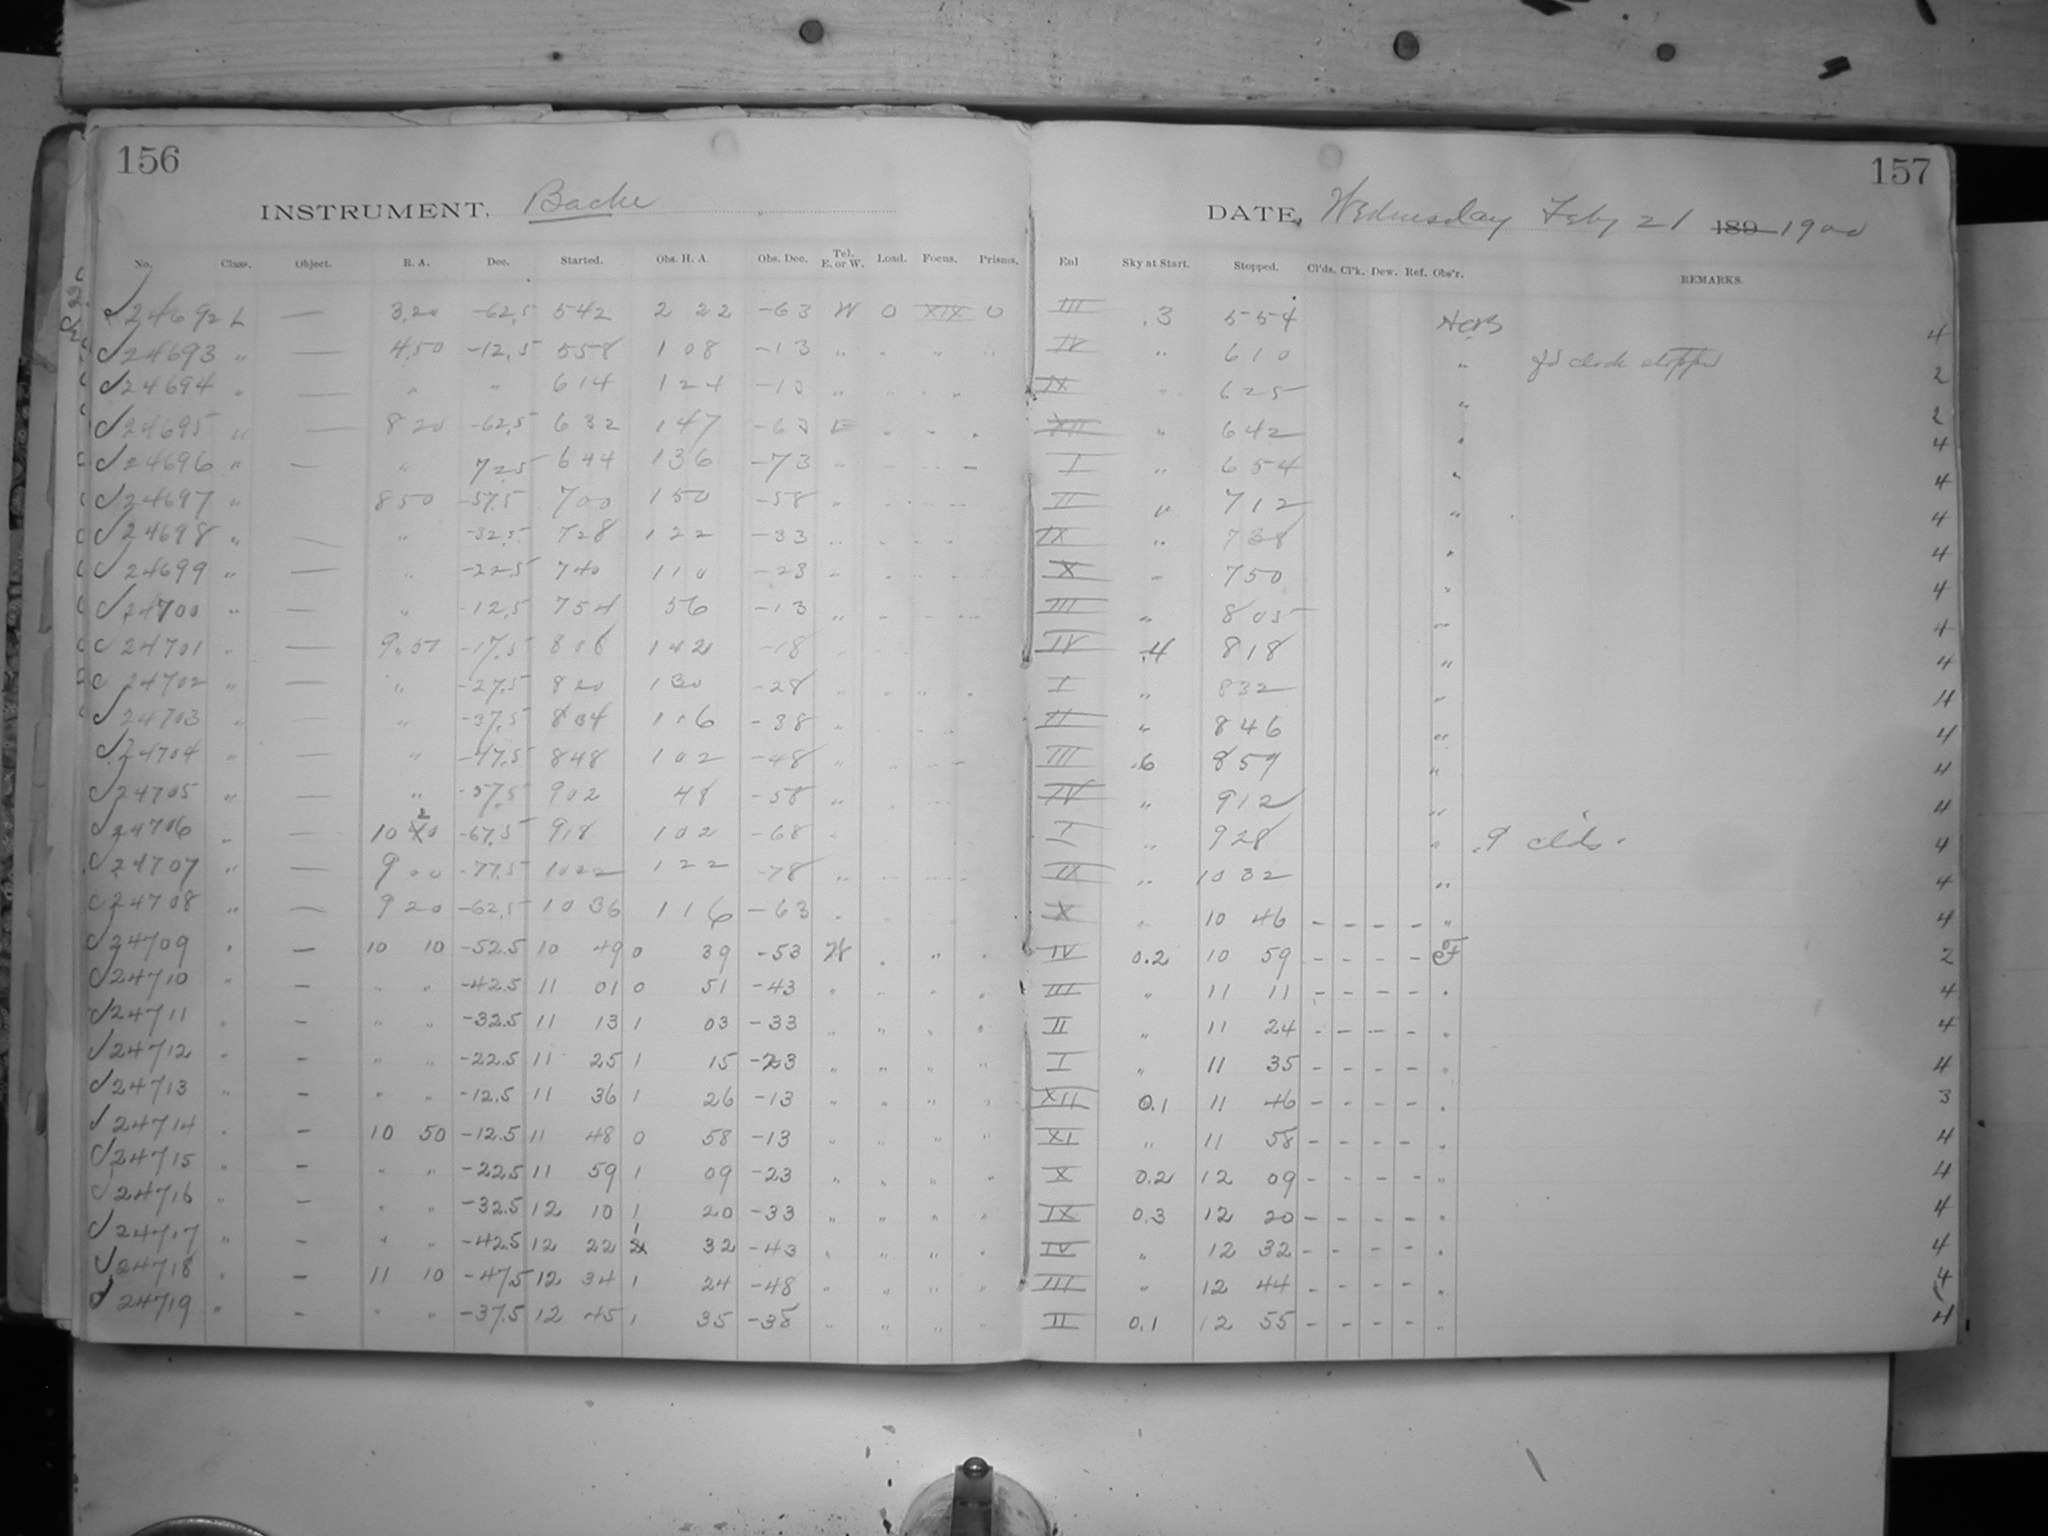 156
157
INSTRUMENT, Bache
DATE, Wednesday Feby 21 189 1900
No. Class. Object. R. A. Dec. Started. Obs. H. A. Obs. Dec. Tel. E. or W. Load. Focus. Prisms. Enl Sky at Start. Stopped. Cl'ds. Cl'k. Dew. Ref. Obs'r. REMARKS.
24692 L — 3.20 -62.5 542 2 22 -63 W 0 XIX 0 III .3 554 4
24693 " — 4.50 -12.5 558 1 08 -13 " " " " IV " 610 " clock stopped 2
24694 " — " " 614 1 24 -13 " " " " IX " 625 " 2
24695 " — 8 20 -62.5 632 1 47 -63 E " " " XII " 642 " 4
24696 " — " 72.5 644 136 -73 " I " 654 " 4
24697 " — 8 50 -57.5 700 1 50 -58 " II " 712 " 4
24698 " — " -32.5 728 1 22 -33 " IX " 738 " 4
24699 " — " -22.5 740 1 10 -23 " X " 750 " 4
24700 " — " -12.5 754 56 -13 " III " 805 " 4
24701 " — -17.5 806 1 42 -18 " IV .4 818 " 4
24702 " — " -27.5 820 130 -28 " " " " I " 832 " 4
24703 " — " -37.5 834 116 -38 " II " 846 " 4
24704 " — " -47.5 848 102 -48 " III .6 859 " 4
24705 " — " -57.5 902 48 -58 " IV " 912 " 4
24706 " — 10 20 -67.5 918 102 -68 " I " 928 " .9 clds. 4
24707 " — 9 00 -77.5 1022 122 -78 " IX " 10 32 " 4
24708 " — 9 20 -62.5 10 36 116 -63 " X " 10 46 - - - - " 4
24709 " — 10 10 -52.5 10 49 0 39 -53 W " " " IV 0.2 10 59 - - - - 2
24710 " — " " -42.5 11 01 0 51 -43 " " " " III " 11 11 - - - - " 4
24711 " — " " -32.5 11 13 1 03 -33 " " " " II " 11 24 - - - - " 4
24712 " — " " -22.5 11 25 1 15 -23 " " " " I " 11 35 - - - - " 4
24713 " — " " -12.5 11 36 1 26 -13 " " " " XII 0.1 11 46 - - - - " 3
24714 " — 10 50 -12.5 11 48 0 58 -13 " " " " XI " 11 58 - - - - " 4
24715 " — " " -22.5 11 59 1 09 -23 " " " " X 0.2 12 09 - - - - " 4
24716 " — " " -32.5 12 10 1 20 -33 " " " " IX 0.3 12 20 - - - - " 4
24717 " — " " -42.5 12 22 1 32 -43 " " " " IV " 12 32 - - - - " 4
24718 " — 11 10 -47.5 12 34 1 24 -48 " " " " III " 12 44 - - - - " 4
24719 " — " " -37.5 12 45 1 35 -38 " " " " II 0.1 12 55 - - - - " 4